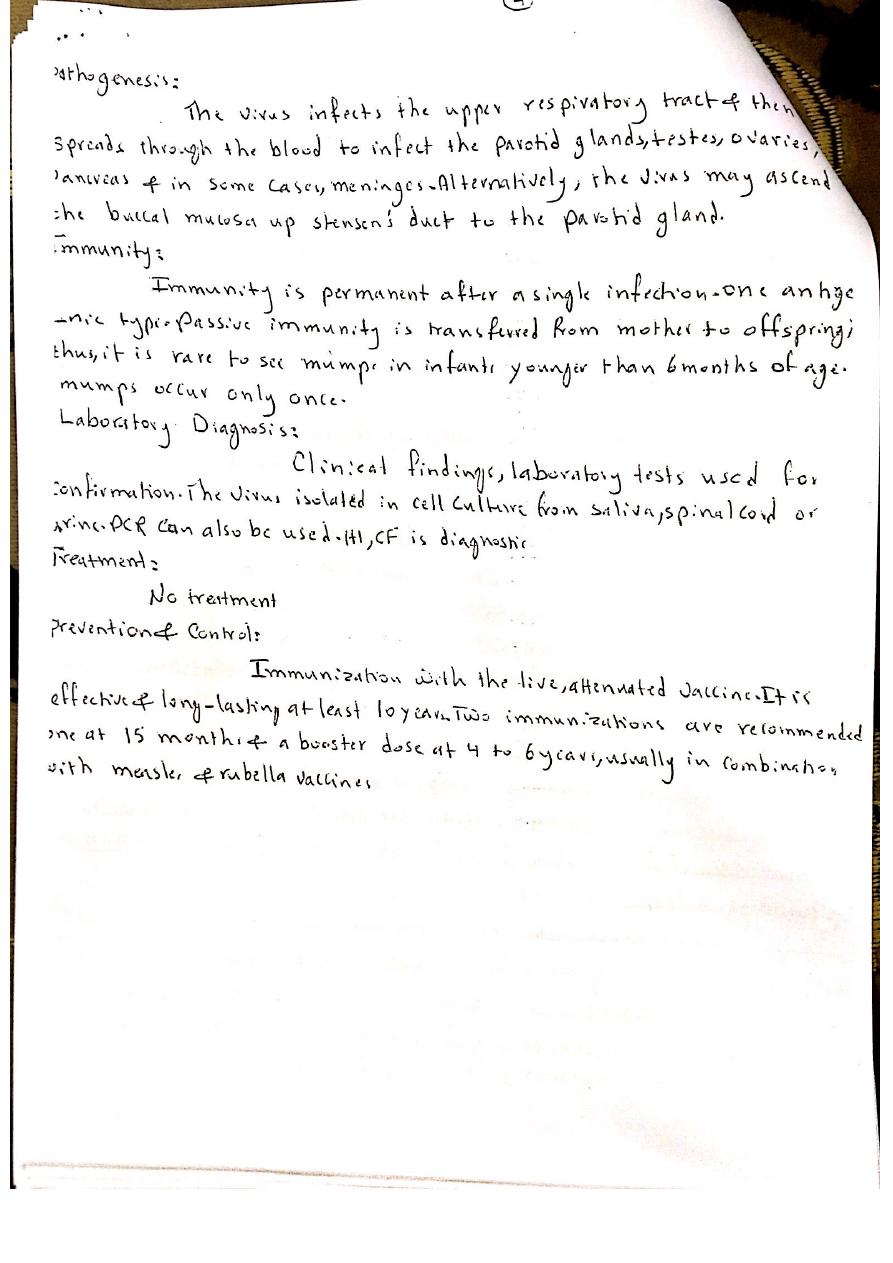 4
athogenesis:
The virus infects the upper respiratory tract & then
spreads through the blood to infect the parotid glands, testes, ovaries,
ancreas & in some cases, meninges. Alternatively, the virus may ascend
the buccal mucosa up stensen's duct to the parotid gland.
Immunity:
Immunity is permanent after a single infection. one antige
-nic type. Passive immunity is transferred from mother to offspring;
thus, it is rare to see mumps in infants younger than 6 months of age.
mumps occur only once.
Laboratory Diagnosis:
Clinical findings, laboratory tests used for
confirmation. The virus isolated in cell culture from saliva, spinal cord or
urine. PCR can also be used. HI, CF is diagnostic
Treatment:
No treatment
Prevention & Control:
Immunization with the live, attenuated vaccine. It is
effective & long-lasting at least 10 years. Two immunizations are recommended
one at 15 months & a booster dose at 4 to 6 years, usually in combination
with measles & rubella vaccines